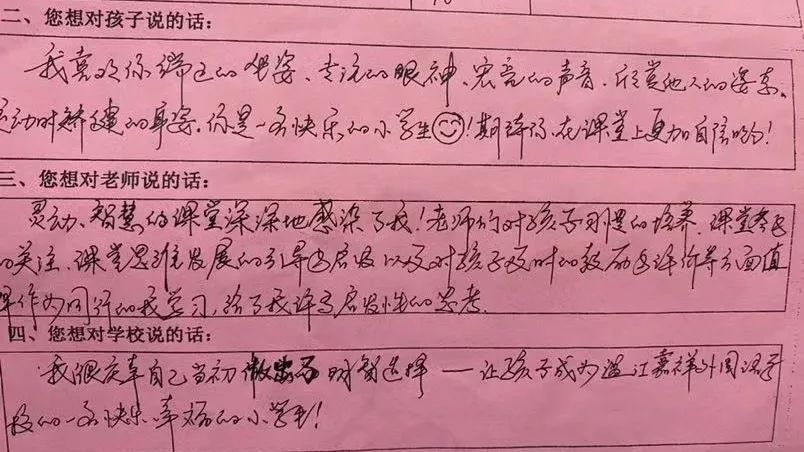 二、您想对孩子说的话:
我喜欢你端正的坐姿、专注的眼神、宏亮的声音、欣赏他人的姿态。
运动时矫健的身姿。你是一名快乐的小学生!期待你在课堂上更加自信哟!
三、您想对老师说的话:
灵动、智慧的课堂深深地感染了我!老师们对孩子习惯的培养、课堂参与
的关注、课堂思维发展的引导与启发以及对孩子及时的鼓励与评价等方面值
得作为同行的我学习,给了我许多启发性的思考.
四、您想对学校说的话:
我很庆幸自己当初做出了明智选择——让孩子成为温江嘉祥外国语学
校的一名快乐幸福的小学生!